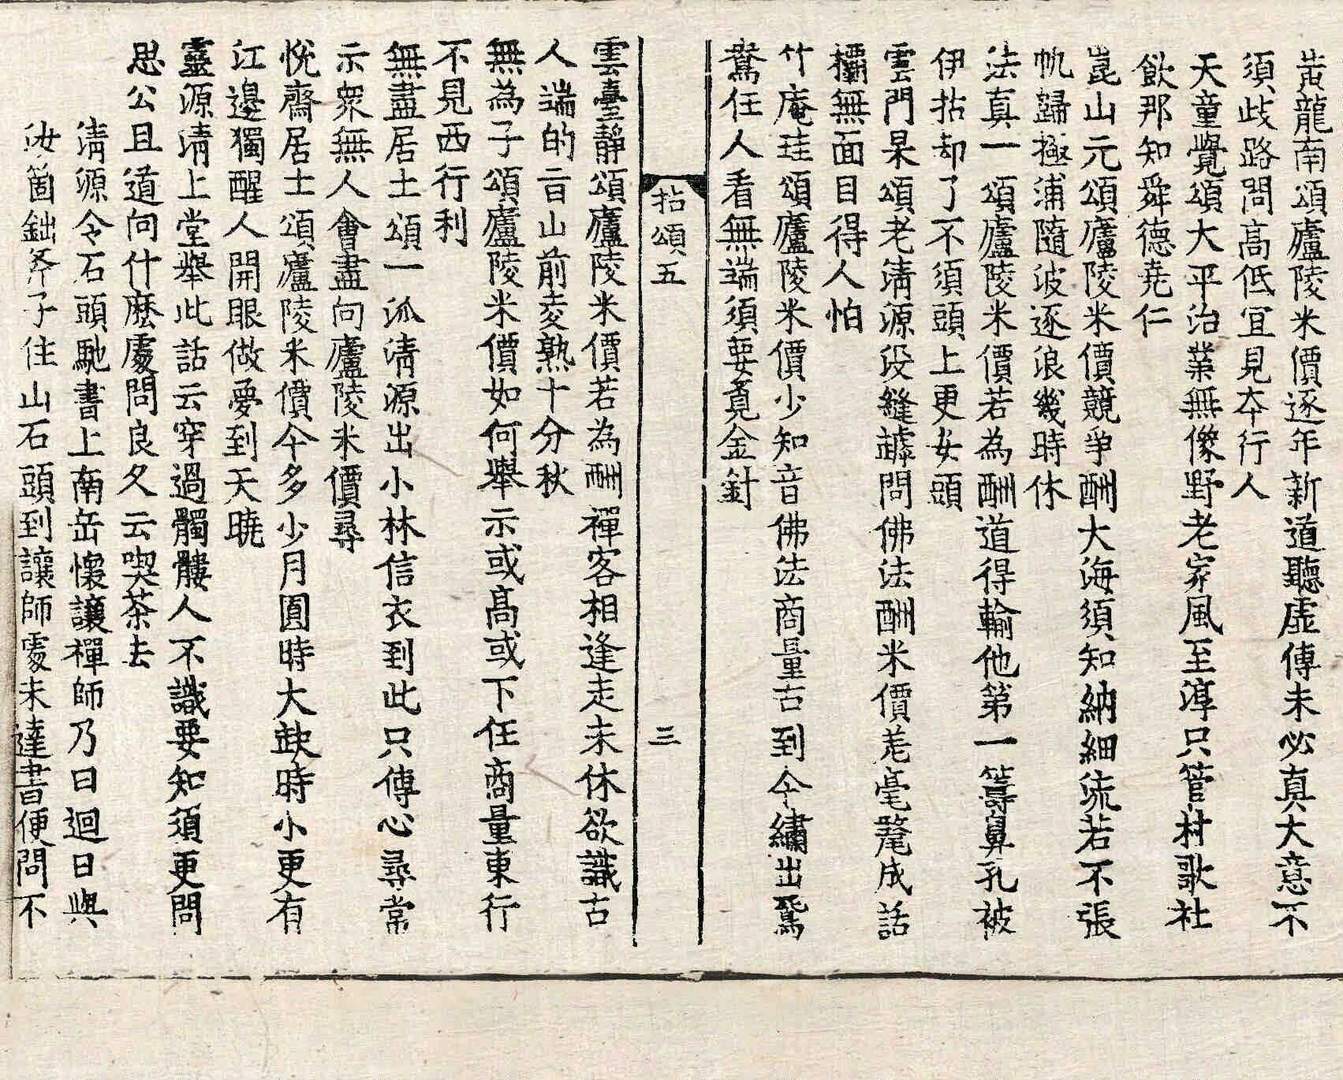 黃龍南頌廬陵米價逐年新道聽虛傳未必真大意不
須歧路問高低宜見夲行人
天童覺頌大平治業無像野老家風至淳只管村歌社
飲那知舜德堯仁
崑山元頌廬陵米價競爭酬大海須知納細流若不張
帆歸極浦隨波逐浪幾時休
法真一頌廬陵米價若為酬道得輸他第一籌鼻孔被
伊拈却了不須頭上更安頭
雲門杲頌老淸源没縫罅問佛法酬米價差毫氂成話
欛無面目得人怕
竹庵珪頌廬陵米價少知音佛法商量古到今繡出鴛
鴦任人看無端須要覔金針
拈頌五
三
雲臺靜頌廬陵米價若為酬禪客相逢走未休欲識古
人端的言山前麦熟十分秋
無為子頌廬陵米價如何舉示或髙或下任商量東行
不見西行利
無盡居士頌一派淸源出小林信衣到此只傳心尋常
示衆無人會盡向廬陵米價尋
悅齋居士頌廬陵米價今多少月圓時大缺時小更有
江邊獨醒人開眼做夢到天曉
靈源淸上堂舉此話云穿過髑髏人不識要知須更問
思公且道向什麽處問良久云喫茶去
淸源令石頭馳書上南岳懷讓禪師乃曰迴日與
汝箇鈯斧子住山石頭到讓師處未達書便問不